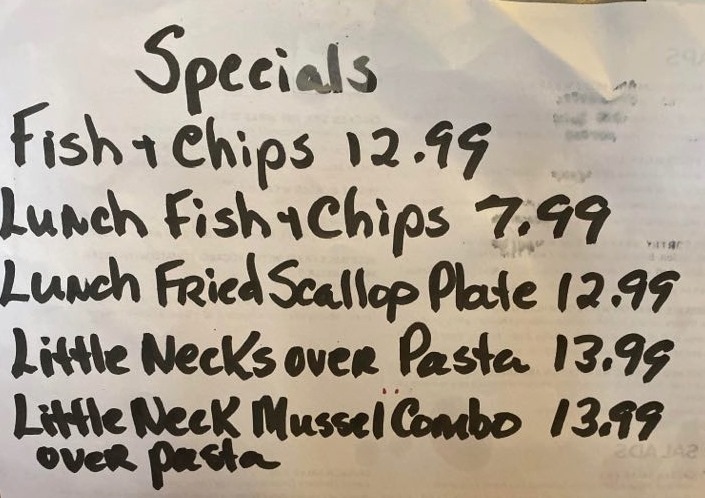 Specials
Fish + Chips 12.99
Lunch Fish + Chips 7.99
Lunch Fried Scallop Plate 12.99
Little Necks over Pasta 13.99
Little Neck Mussel Combo 13.99
over pasta
SALADS